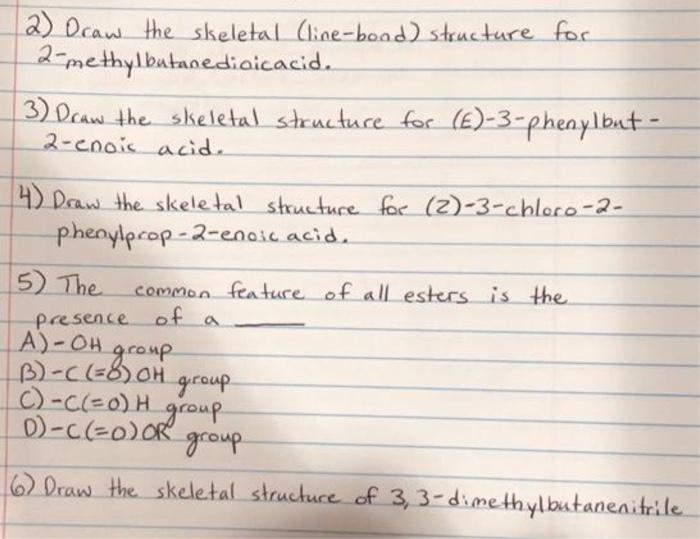 2) Draw the skeletal (line-bond) structure for
2-methylbutanedioicacid.
3) Draw the skeletal structure for (E)-3-phenylbut-
2-enoic acid.
4) Draw the skeletal structure for (Z)-3-chloro-2-
phenylprop-2-enoic acid.
5) The common feature of all esters is the
presence of a ____
A) -OH group
B) -C(=O)OH group
C) -C(=O)H group
D) -C(=O)OR group
6) Draw the skeletal structure of 3,3-dimethylbutanenitrile